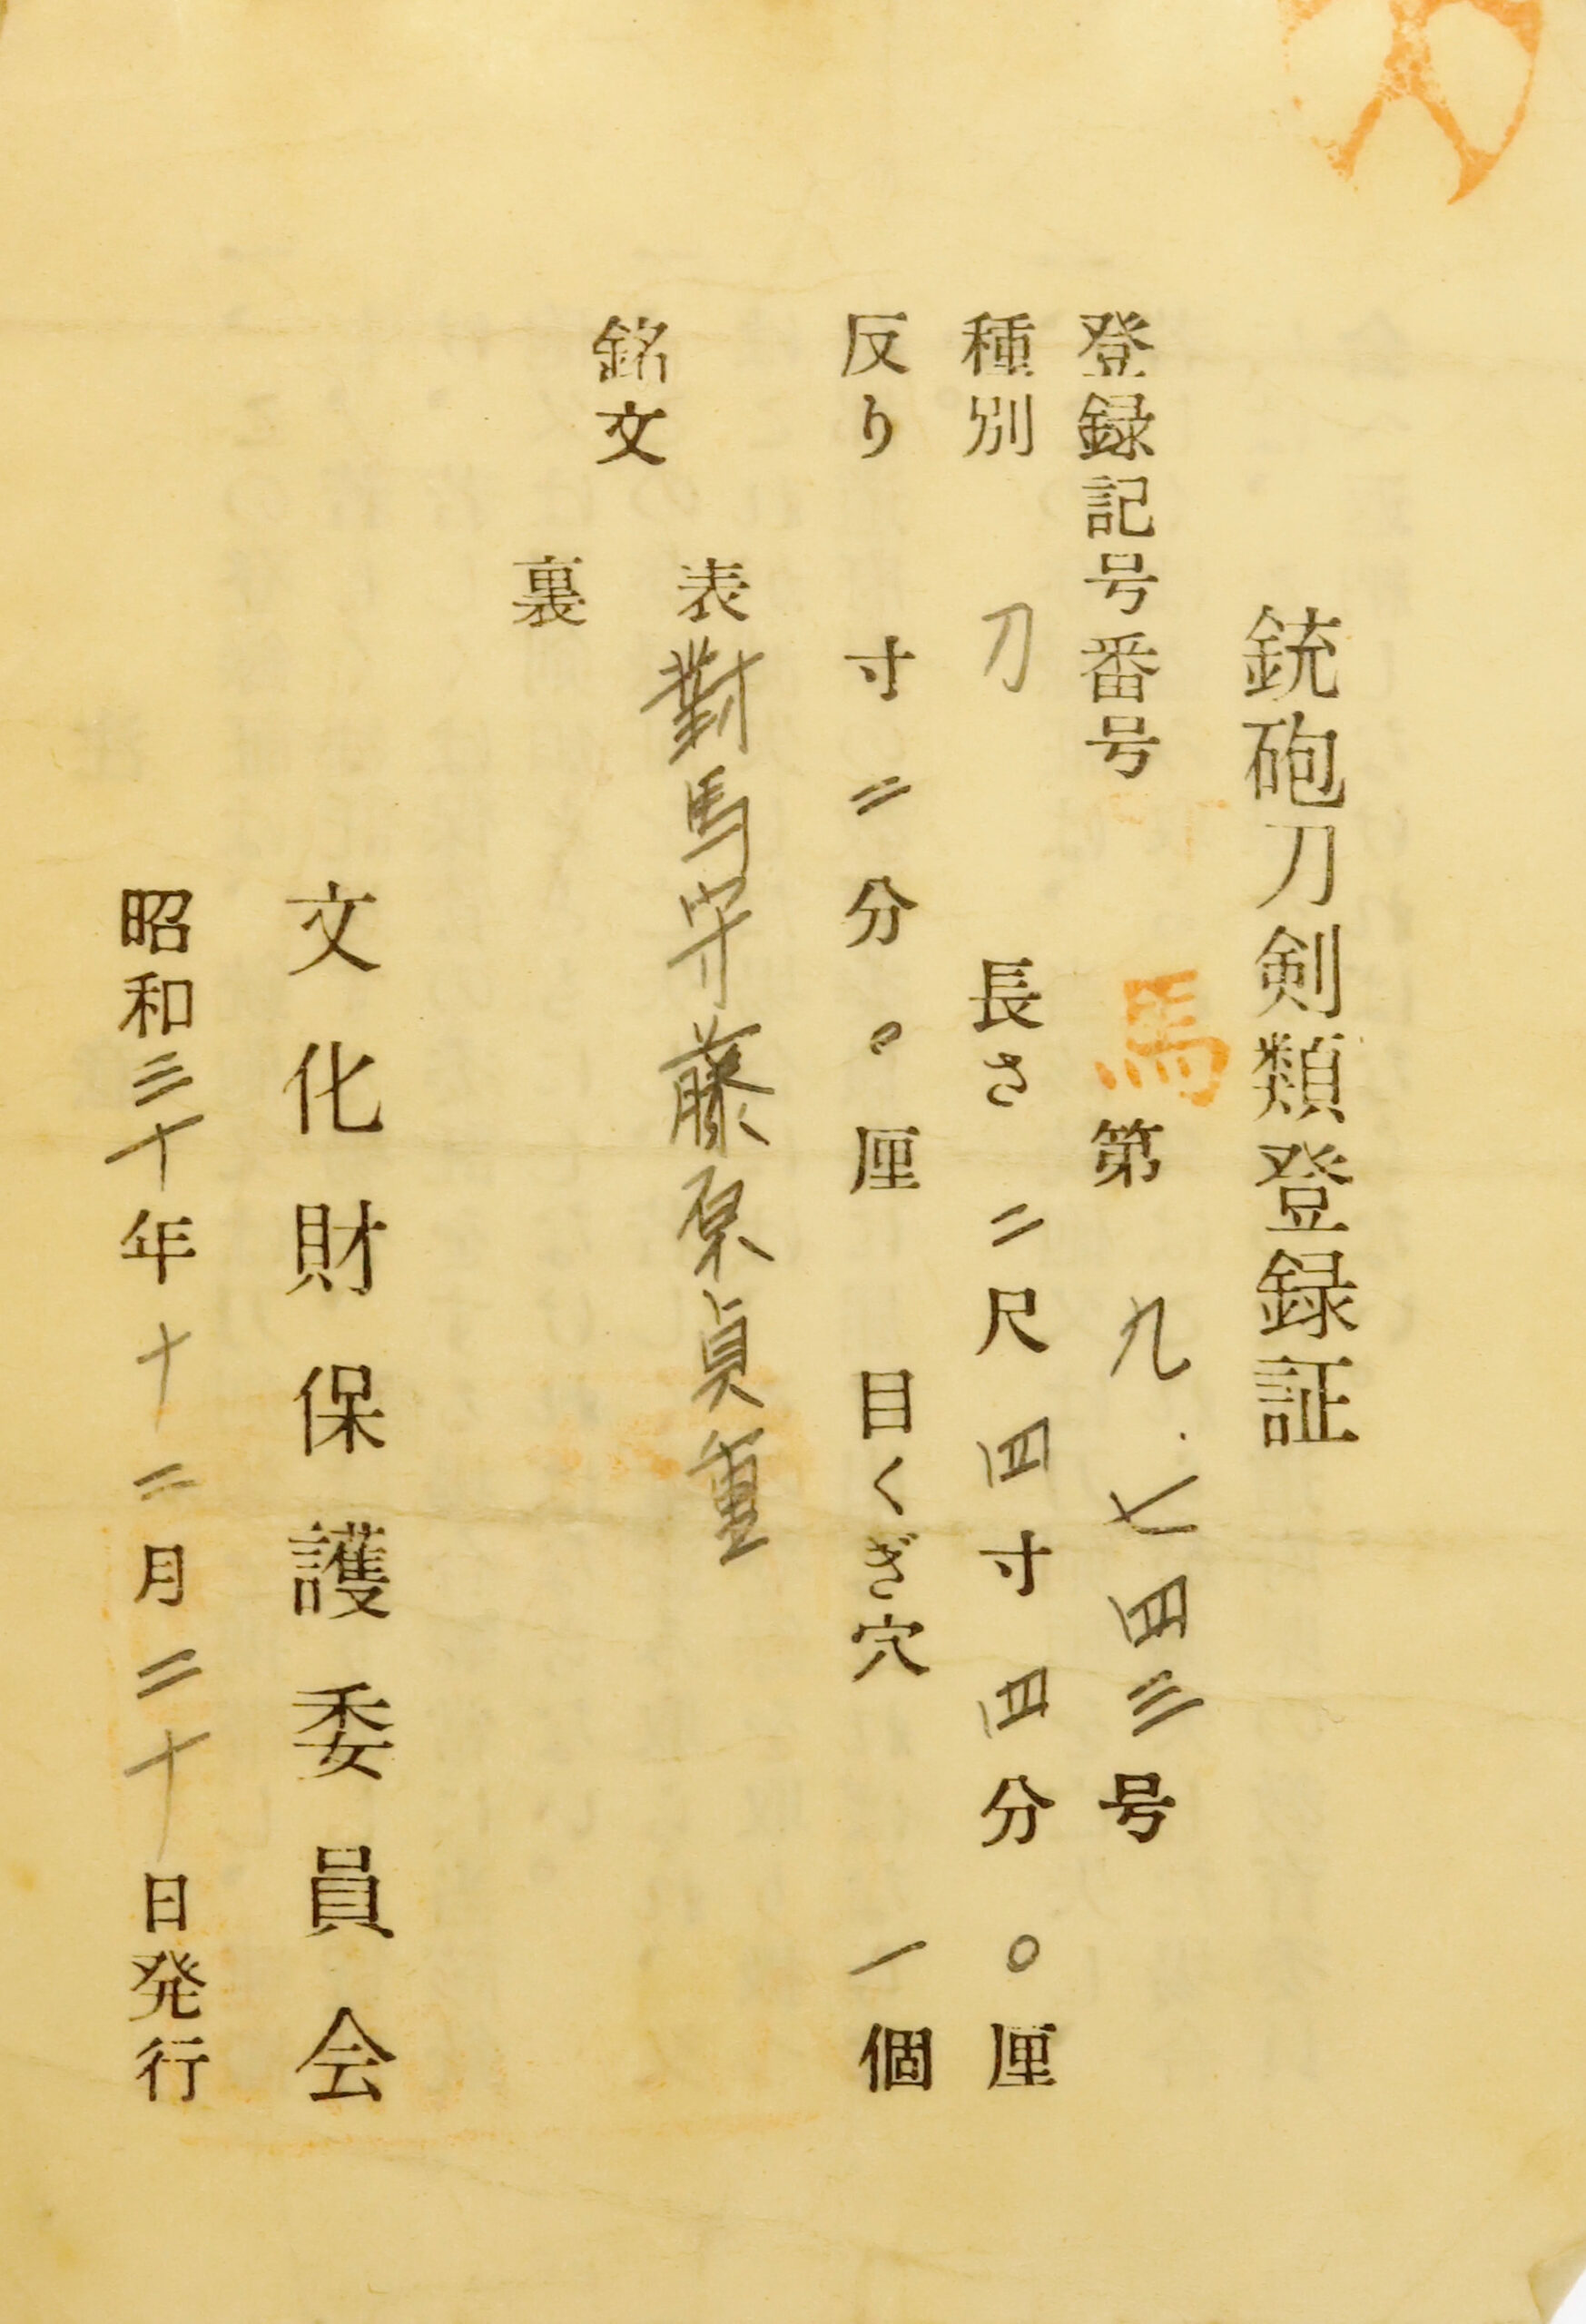 銃砲刀剣類登録証
登録記号番号 馬第九七四三号
種別 刀 長さ 二尺四寸四分〇厘
反り 寸二分〇厘 目くぎ穴 一個
銘文
表 對馬守藤原貞重
裏
文化財保護委員会
昭和三十年十二月二十日発行